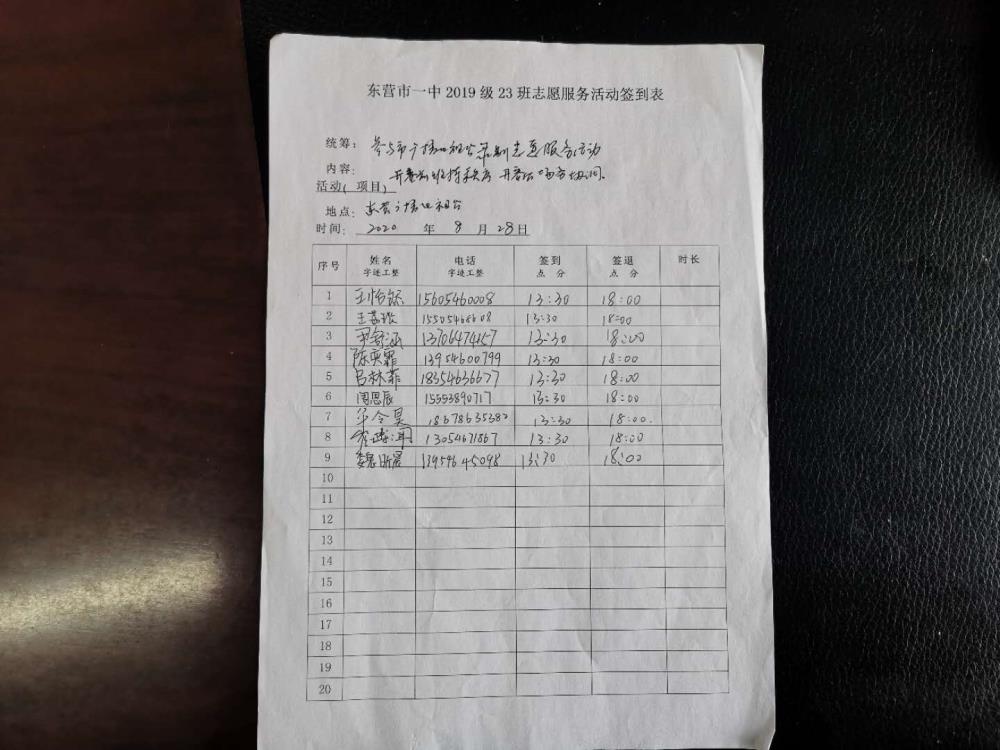 东营市一中2019级23班志愿服务活动签到表
统筹：参与市广播电视台录制志愿服务活动
内容：开幕前维持秩序 开幕后
活动（项目）
地点：东营广播电视台
时间：2020 年 8 月 28 日
序号 姓名 字迹工整 电话 字迹工整 签到 点 分 签退 点 分 时长
1 王怡 15605460008 13:30 18:00
2 王 15505468608 13:30 18:00
3 涵 13706474157 13:30 18:00
4 陈奕霏 13954600799 13:30 18:00
5 吕林菲 18354636677 13:30 18:00
6 周思辰 15553890717 13:30 18:00
7 单令昊 18678635382 13:30 18:00.
8 13054671867 13:30 18:00
9 魏昕晨 13954645098 13:30 18:00
10
11
12
13
14
15
16
17
18
19
20